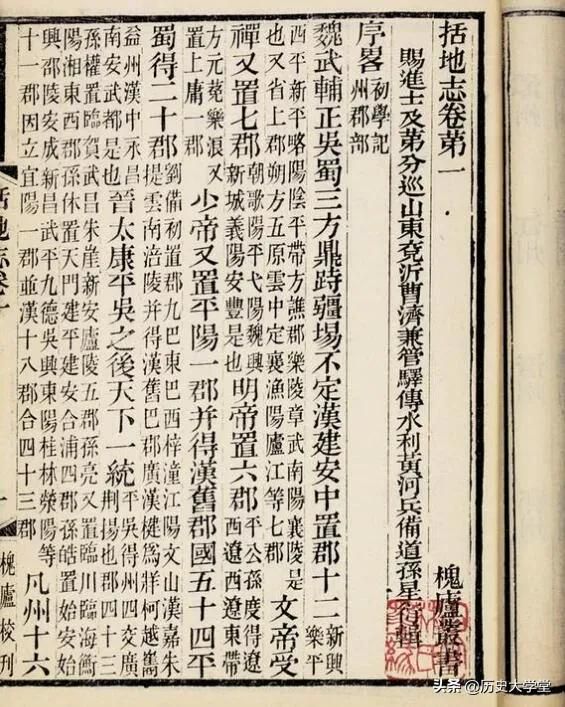 括地志卷第一 槐廬叢書
賜進士及第分巡山東兗沂曹濟兼管驛傳水利黃河兵備道孫星衍輯
序畧 初學記州郡部
魏武輔正吳蜀三方鼎跱疆埸不定漢建安中置郡十二 新興樂平
西平新平略陽陰平帶方譙郡樂陵章武南陽襄陵是也又省上郡朔方五原雲中定襄漁陽廬江等七郡 文帝受
禪又置七郡 朝歌陽平弋陽魏興新城義陽安豐是也 明帝置六郡 平公孫度得遼西遼西遼東帶
方元菟樂浪又置上庸一郡 少帝又置平陽一郡并得漢舊郡國五十四平
蜀得二十郡 劉備初置郡九巴東巴西梓潼江陽文山漢嘉朱提雲南涪陵并得漢舊巴郡廣漢犍爲牂柯越嶲
益州漢中永昌南安武都是也 晉太康平吳之後天下一統 平吳得州四交廣荆揚也郡四十三
孫權置臨賀武昌朱崖新安廬陵五郡孫亮又置臨川臨海衡陽湘東西郡孫休置天門建平建安合浦四郡孫皓置始安始
興邵陵安成新昌武平九德吳興東陽桂林滎陽等十一郡因立宜陽一郡並漢十八郡合四十三郡 凡州十六
括地志卷一 一 槐廬校刊
头条 @历史大学堂